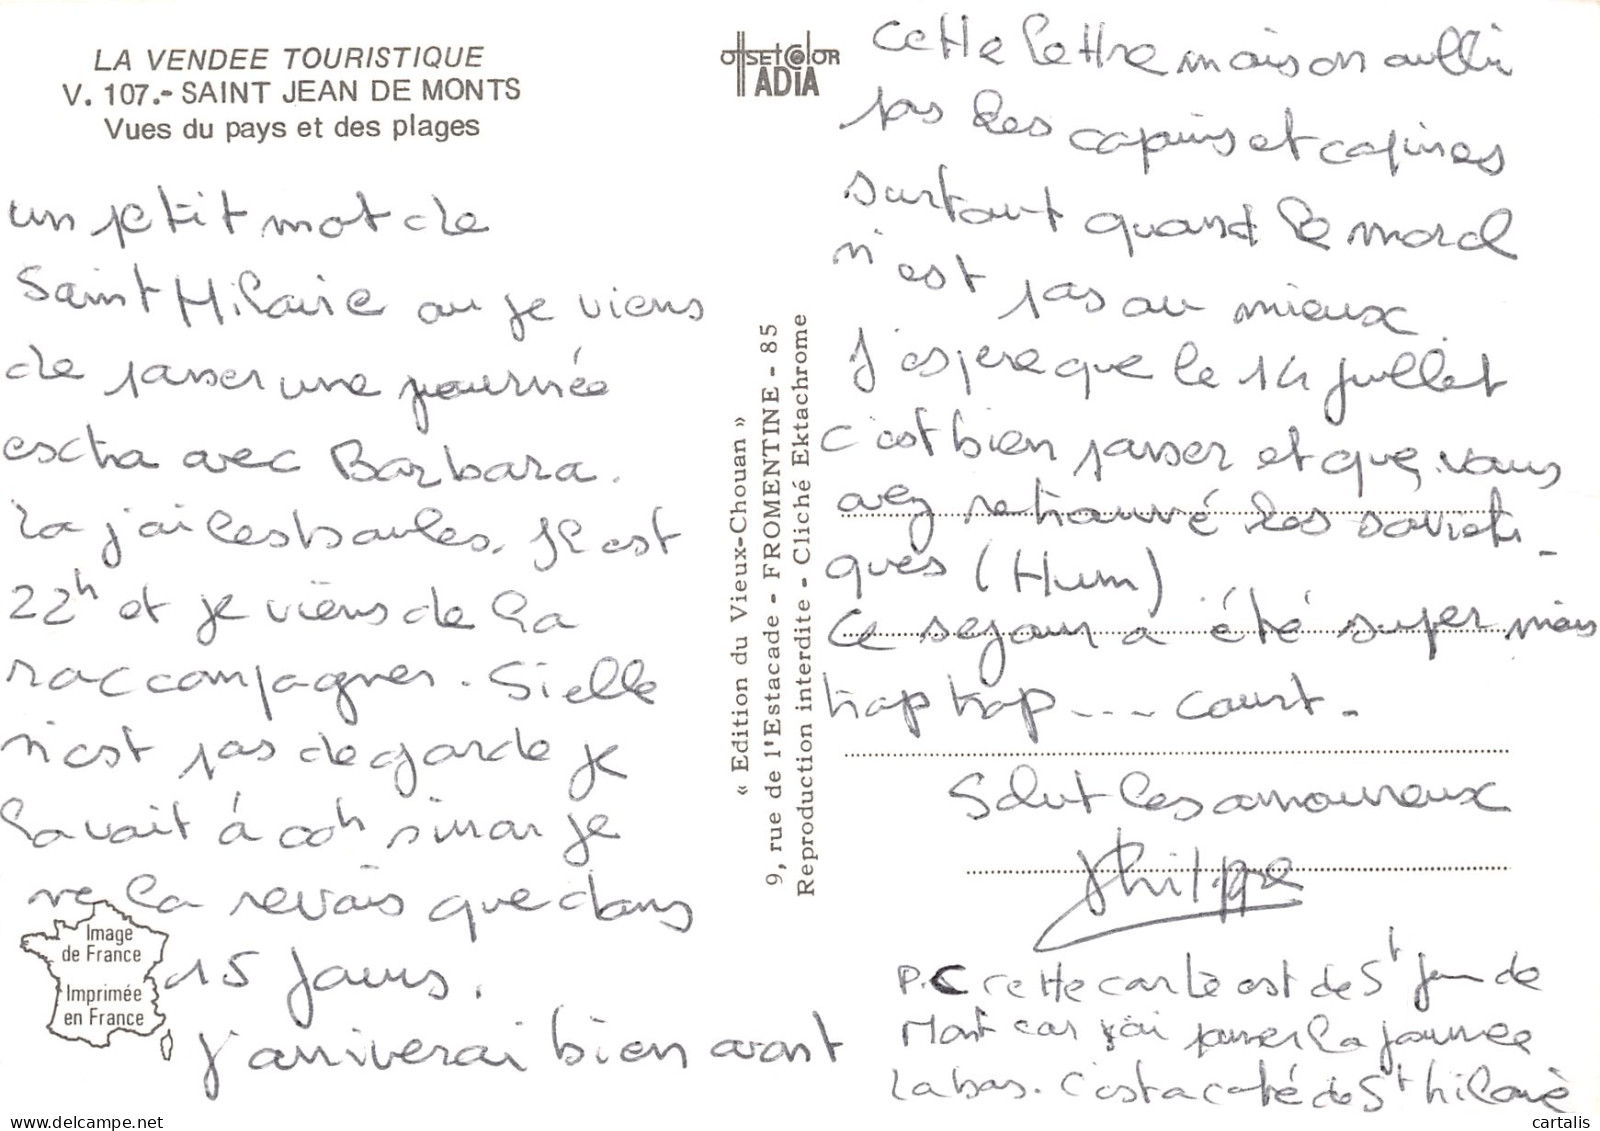 LA VENDEE TOURISTIQUE
V. 107.- SAINT JEAN DE MONTS
Vues du pays et des plages
un petit mot de
Saint Hilaire ou je viens
de passer une journée
extra avec Barbara.
La j'ai les boules. Il est
22h et je viens de la
raccompagner. Si elle
n'est pas de garde je
la voit à 00h sinon je
ne la revois que dans
15 jours.
j'arriverai bien avant
Image
de France
Imprimée
en France
OFFSET COLOR
ADIA
« Edition du Vieux-Chouan »
9, rue de l'Estacade - FROMENTINE - 85
Reproduction interdite - Cliché Ektachrome
cette lettre mais on oublie
pas les copains et copines
surtout quand le moral
n'est pas au mieux.
J'espere que le 14 juillet
c'est bien passer et que vous
avez retrouvé les sovieti-
ques (Hum)
Ce sejour a été super mais
trop trop --- court.
Salut les amoureux
Philippe
P.C cette carte est de St Jean de
Mont car j'ai passer la journee
labas. C'est a coté de St hilaire
cartalis